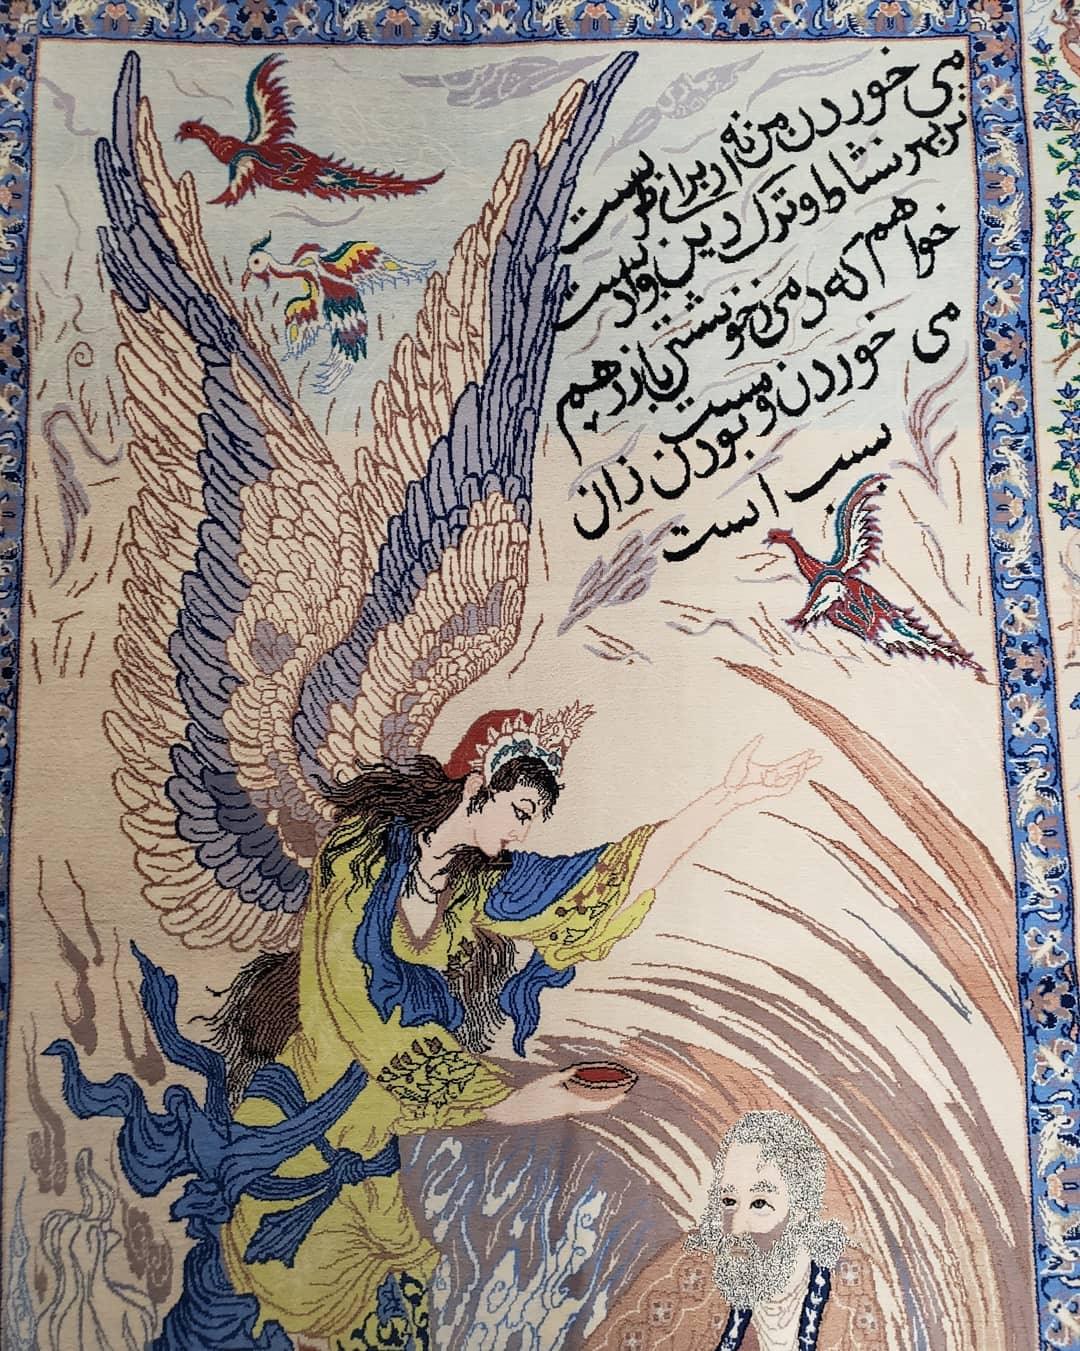 می خوردن من نه از برای طربست
نز بهر نشاط و ترک دین و ادبست
خواهم که دمی خویشتن باز رهم
می خوردن و مست بودن زان
سبب است